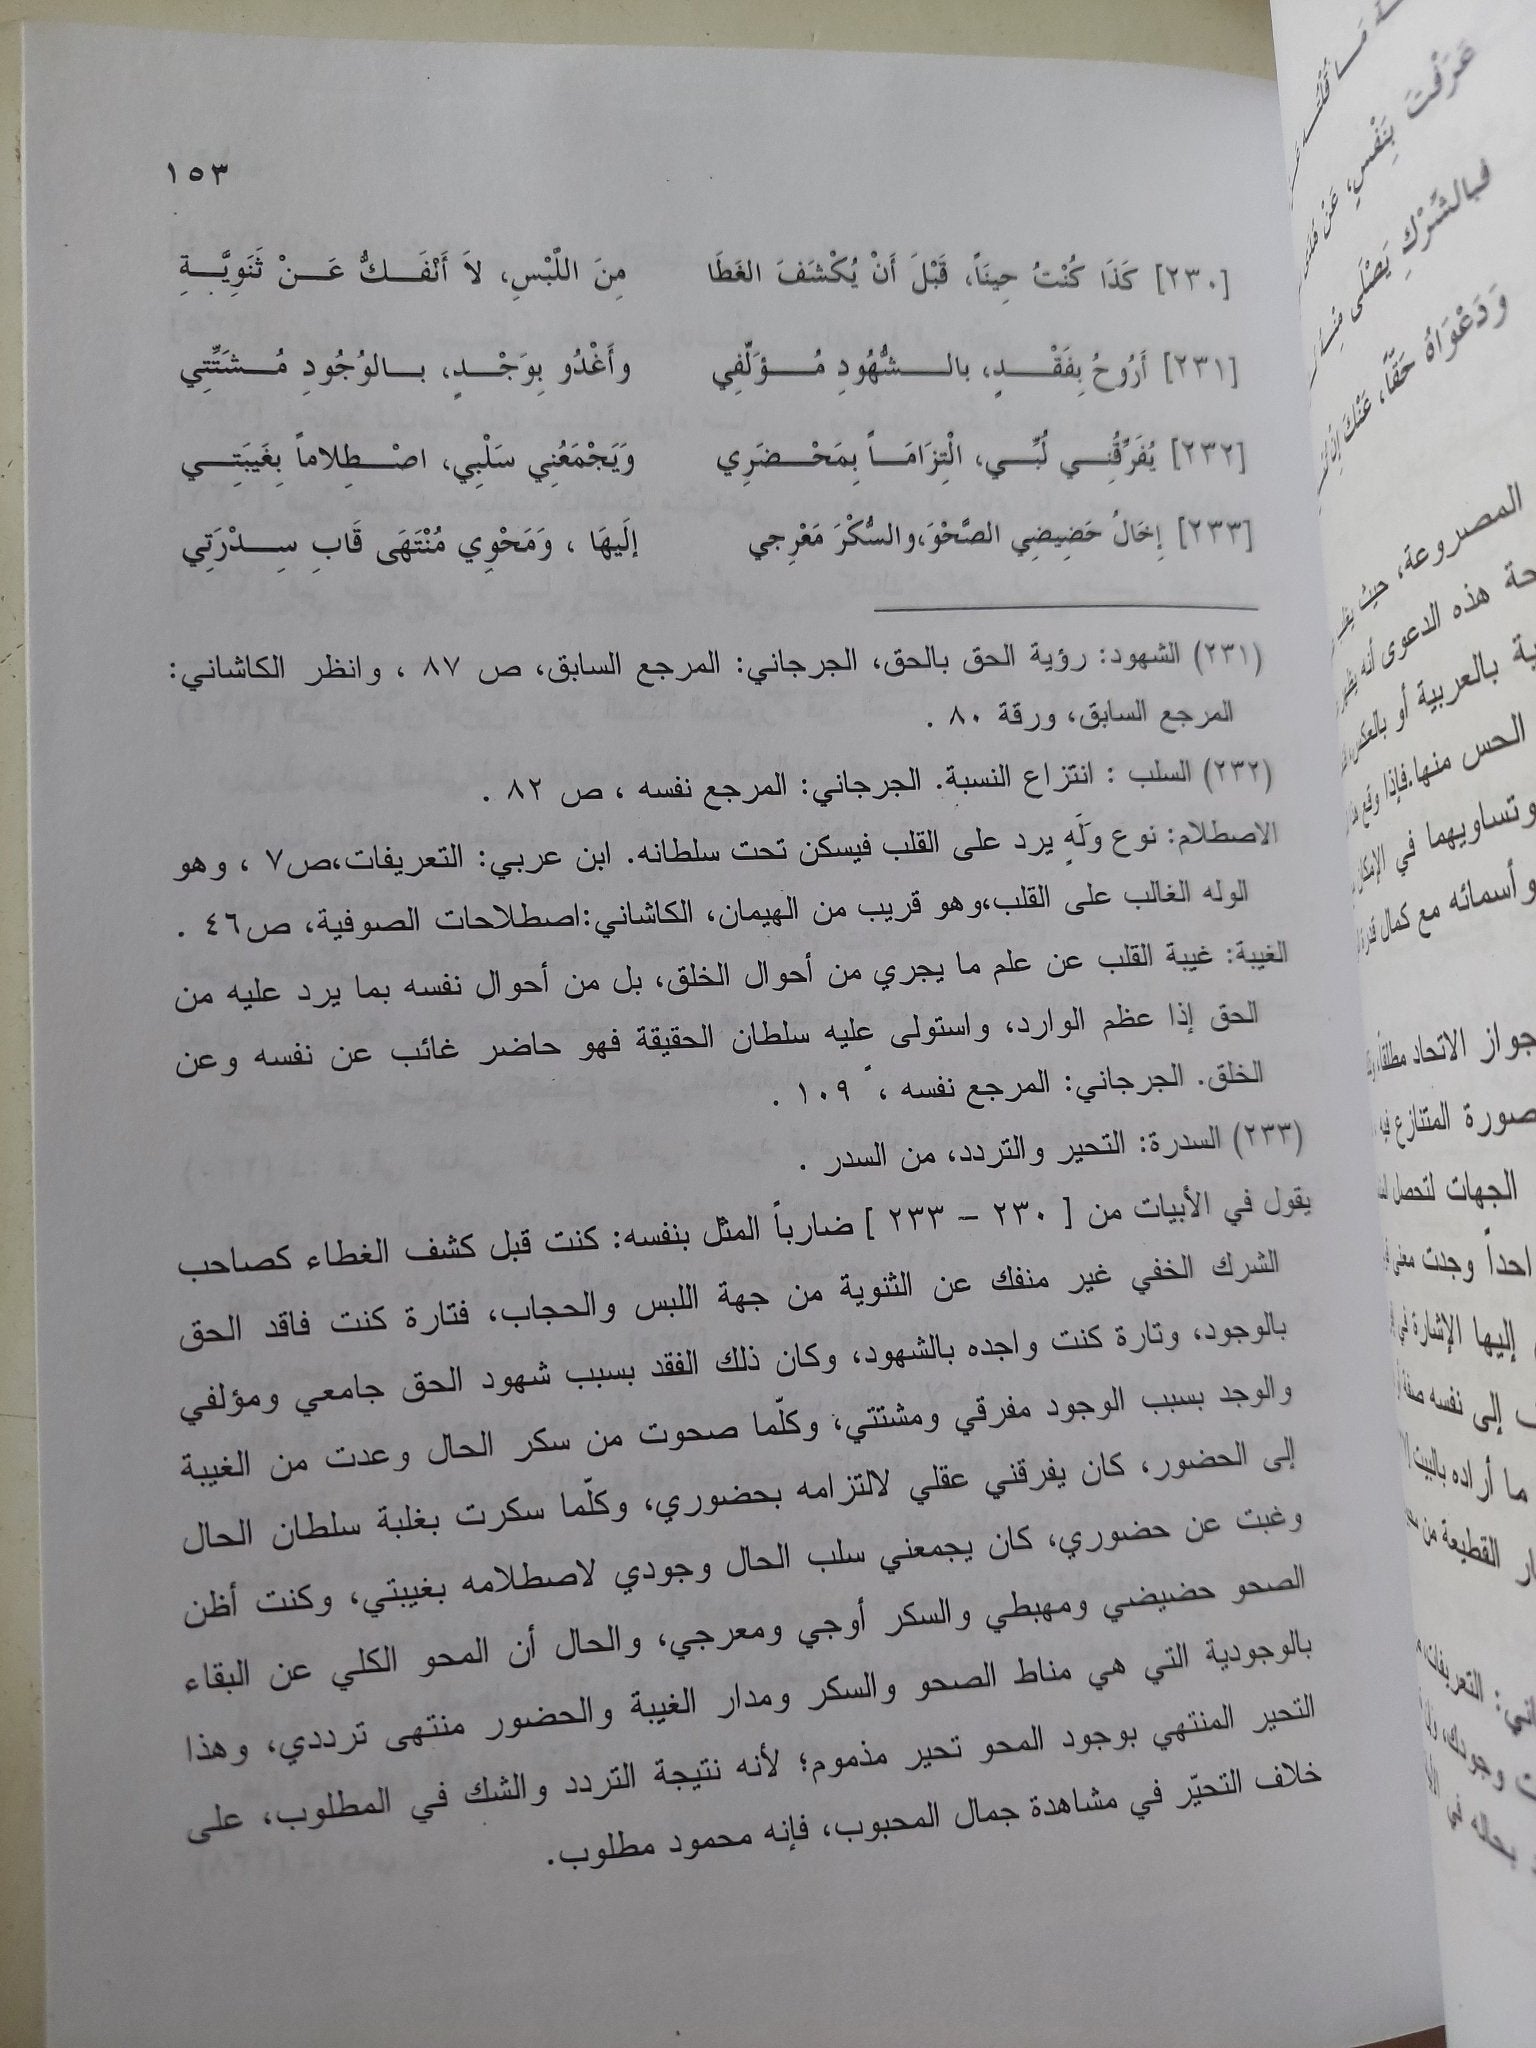 ١٥٣
[٢٣٠] كَذَا كُنْتُ حِينَاً، قَبْلَ أَنْ يُكْشَفَ الغَطَا مِنَ اللَّبْسِ، لاَ أَنْفَـكُّ عَـنْ ثَنَوِيَّـةِ
[٢٣١] أَرُوحُ بِفَقْـدٍ، بالـشُّهُودِ مُـؤَلِّفِي وأَغْدُو بِوَجْـدٍ، بـالوُجُودِ مُـشَتِّتِي
[٢٣٢] يُفَرِّقُنِـي لُبِّـي، الْتِزَامَـاً بِمَحْـضَرِي وَيَجْمَعُنِي سَلْبِي، اصْـطِلاماً بِغَيبَتِـي
[٢٣٣] إِخَالُ حَضِيضِي الصَّحْوَ،والسُّكْرَ مَعْرِجي إلَيهَا ، وَمَحْوِي مُنْتَهَى قَابِ سِـدْرَتِي
(٢٣١) الشهود: رؤية الحق بالحق، الجرجاني: المرجع السابق، ص ٨٧ ، وانظر الكاشاني:
المرجع السابق، ورقة ٨٠ .
(٢٣٢) السلب : انتزاع النسبة. الجرجاني: المرجع نفسه ، ص ٨٢ .
الاصطلام: نوع وَلَهٍ يرد على القلب فيسكن تحت سلطانه. ابن عربي: التعريفات،ص٧ ، وهو
الوله الغالب على القلب،وهو قريب من الهيمان، الكاشاني:اصطلاحات الصوفية، ص٤٦ .
الغيبة: غيبة القلب عن علم ما يجري من أحوال الخلق، بل من أحوال نفسه بما يرد عليه من
الحق إذا عظم الوارد، واستولى عليه سلطان الحقيقة فهو حاضر غائب عن نفسه وعن
الخلق. الجرجاني: المرجع نفسه ، ١٠٩ .
(٢٣٣) السدرة: التحير والتردد، من السدر .
يقول في الأبيات من [ ٢٣٠ – ٢٣٣ ] ضارباً المثل بنفسه: كنت قبل كشف الغطاء كصاحب
الشرك الخفي غير منفك عن الثنوية من جهة اللبس والحجاب، فتارة كنت فاقد الحق
بالوجود، وتارة كنت واجده بالشهود، وكان ذلك الفقد بسبب شهود الحق جامعي ومؤلفي
والوجد بسبب الوجود مفرقي ومشتتي، وكلّما صحوت من سكر الحال وعدت من الغيبة
إلى الحضور، كان يفرقني عقلي لالتزامه بحضوري، وكلّما سكرت بغلبة سلطان الحال
وغبت عن حضوري، كان يجمعني سلب الحال وجودي لاصطلامه بغيبتي، وكنت أظن
الصحو حضيضي ومهبطي والسكر أوجي ومعرجي، والحال أن المحو الكلي عن البقاء
بالوجودية التي هي مناط الصحو والسكر ومدار الغيبة والحضور منتهى ترددي، وهذا
التحير المنتهي بوجود المحو تحير مذموم؛ لأنه نتيجة التردد والشك في المطلوب، على
خلاف التحيّر في مشاهدة جمال المحبوب، فإنه محمود مطلوب.
عَرَفْتَ بِنَفْسٍ، عَنْ
فبالشِّرْكِ يَصْلَى
وَدَعْوَاهُ حَقّاً، عَنْكَ إنْ
المصروعة، حيث
هذه الدعوى أنه
بالعربية أو بالعكس،
الحس منها.فإذا وقع
وتساويهما في الإمكان
وأسمائه مع كمال
جواز الاتحاد مطلقاً،
صورة المتنازع فيه
الجهات لتحصل
احداً وجدت معنى
إليها الإشارة في
إلى نفسه صفة
ما أراده بالبيت
القطيعة من
التعريفات،